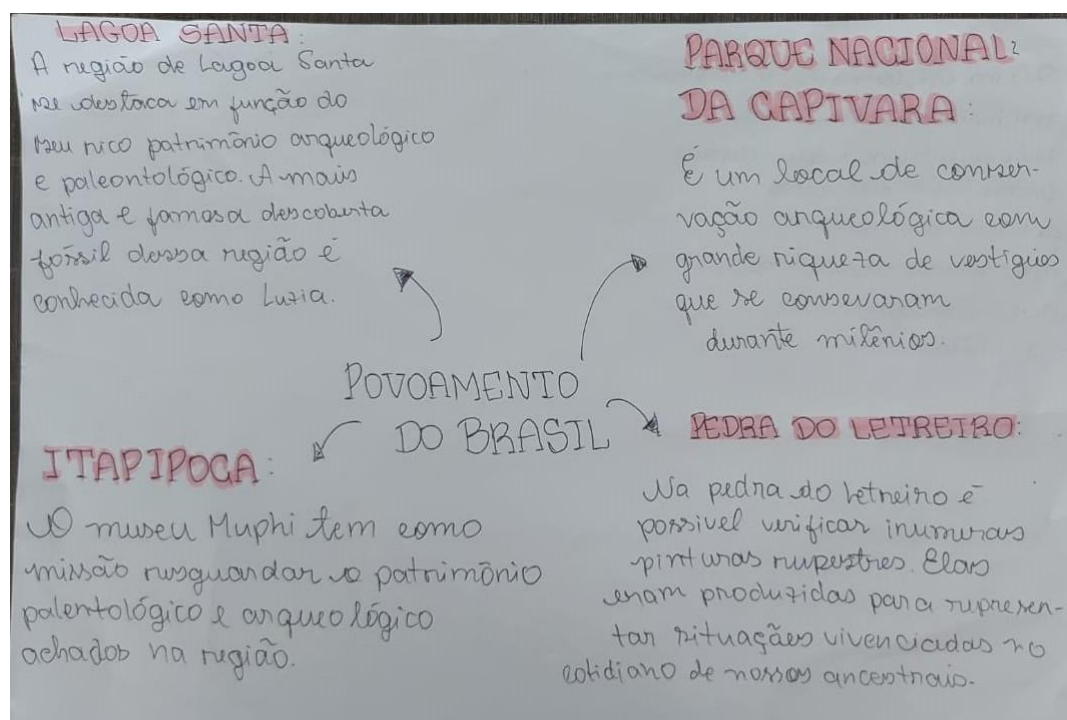 LAGOA SANTA:
A região de Lagoa Santa
se destaca em função do
seu rico patrimônio arqueológico
e paleontológico. A mais
antiga e famosa descoberta
fóssil dessa região é
conhecida como Luzia.
PARQUE NACIONAL
DA CAPIVARA:
É um local de conser-
vação arqueológica com
grande riqueza de vestígios
que se consevaram
durante milênios.
POVOAMENTO
DO BRASIL
ITAPIPOCA:
O museu Muphi tem como
missão resguardar o patrimônio
palentológico e arqueológico
achados na região.
PEDRA DO LETREIRO:
Na pedra do letreiro é
possivel verificar inumeras
pinturas rupestres. Elas
eram produzidas para represen-
tar situações vivenciadas no
cotidiano de nossos ancestrais.